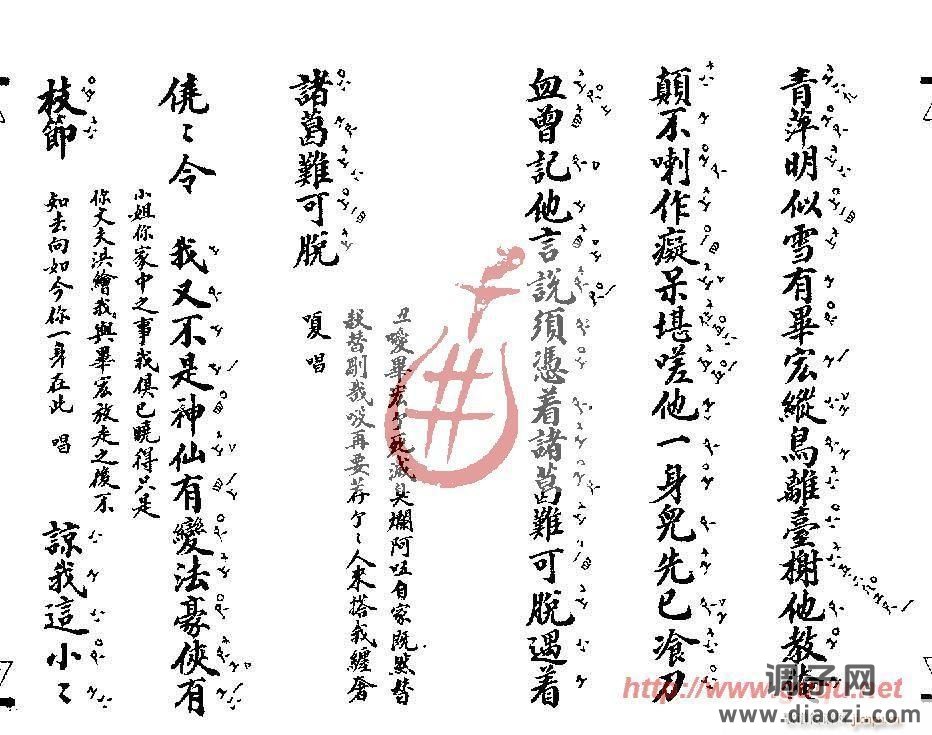 青萍明似雪有畢宏縱鳥離臺榭他教
顛不喇作癡呆堪嗟他一身兒先已飡刀
血曾記他言說須憑着諸葛難可脫遇着
諸葛難可脫
丑嗳畢宏個死滅臭爛阿呸自家既然替
殺替剮哉咬再要荐個個人來搭我纏賡
嗄唱
僥僥令 我又不是神仙有變法豪俠有
小姐你家中之事我俱已曉得只是
你丈夫洪繪我與畢宏放走之後不
知去向如今你一身在此 唱
枝節 諒我這小小
http://www.jitapu.net
调子网
www.diaozi.com